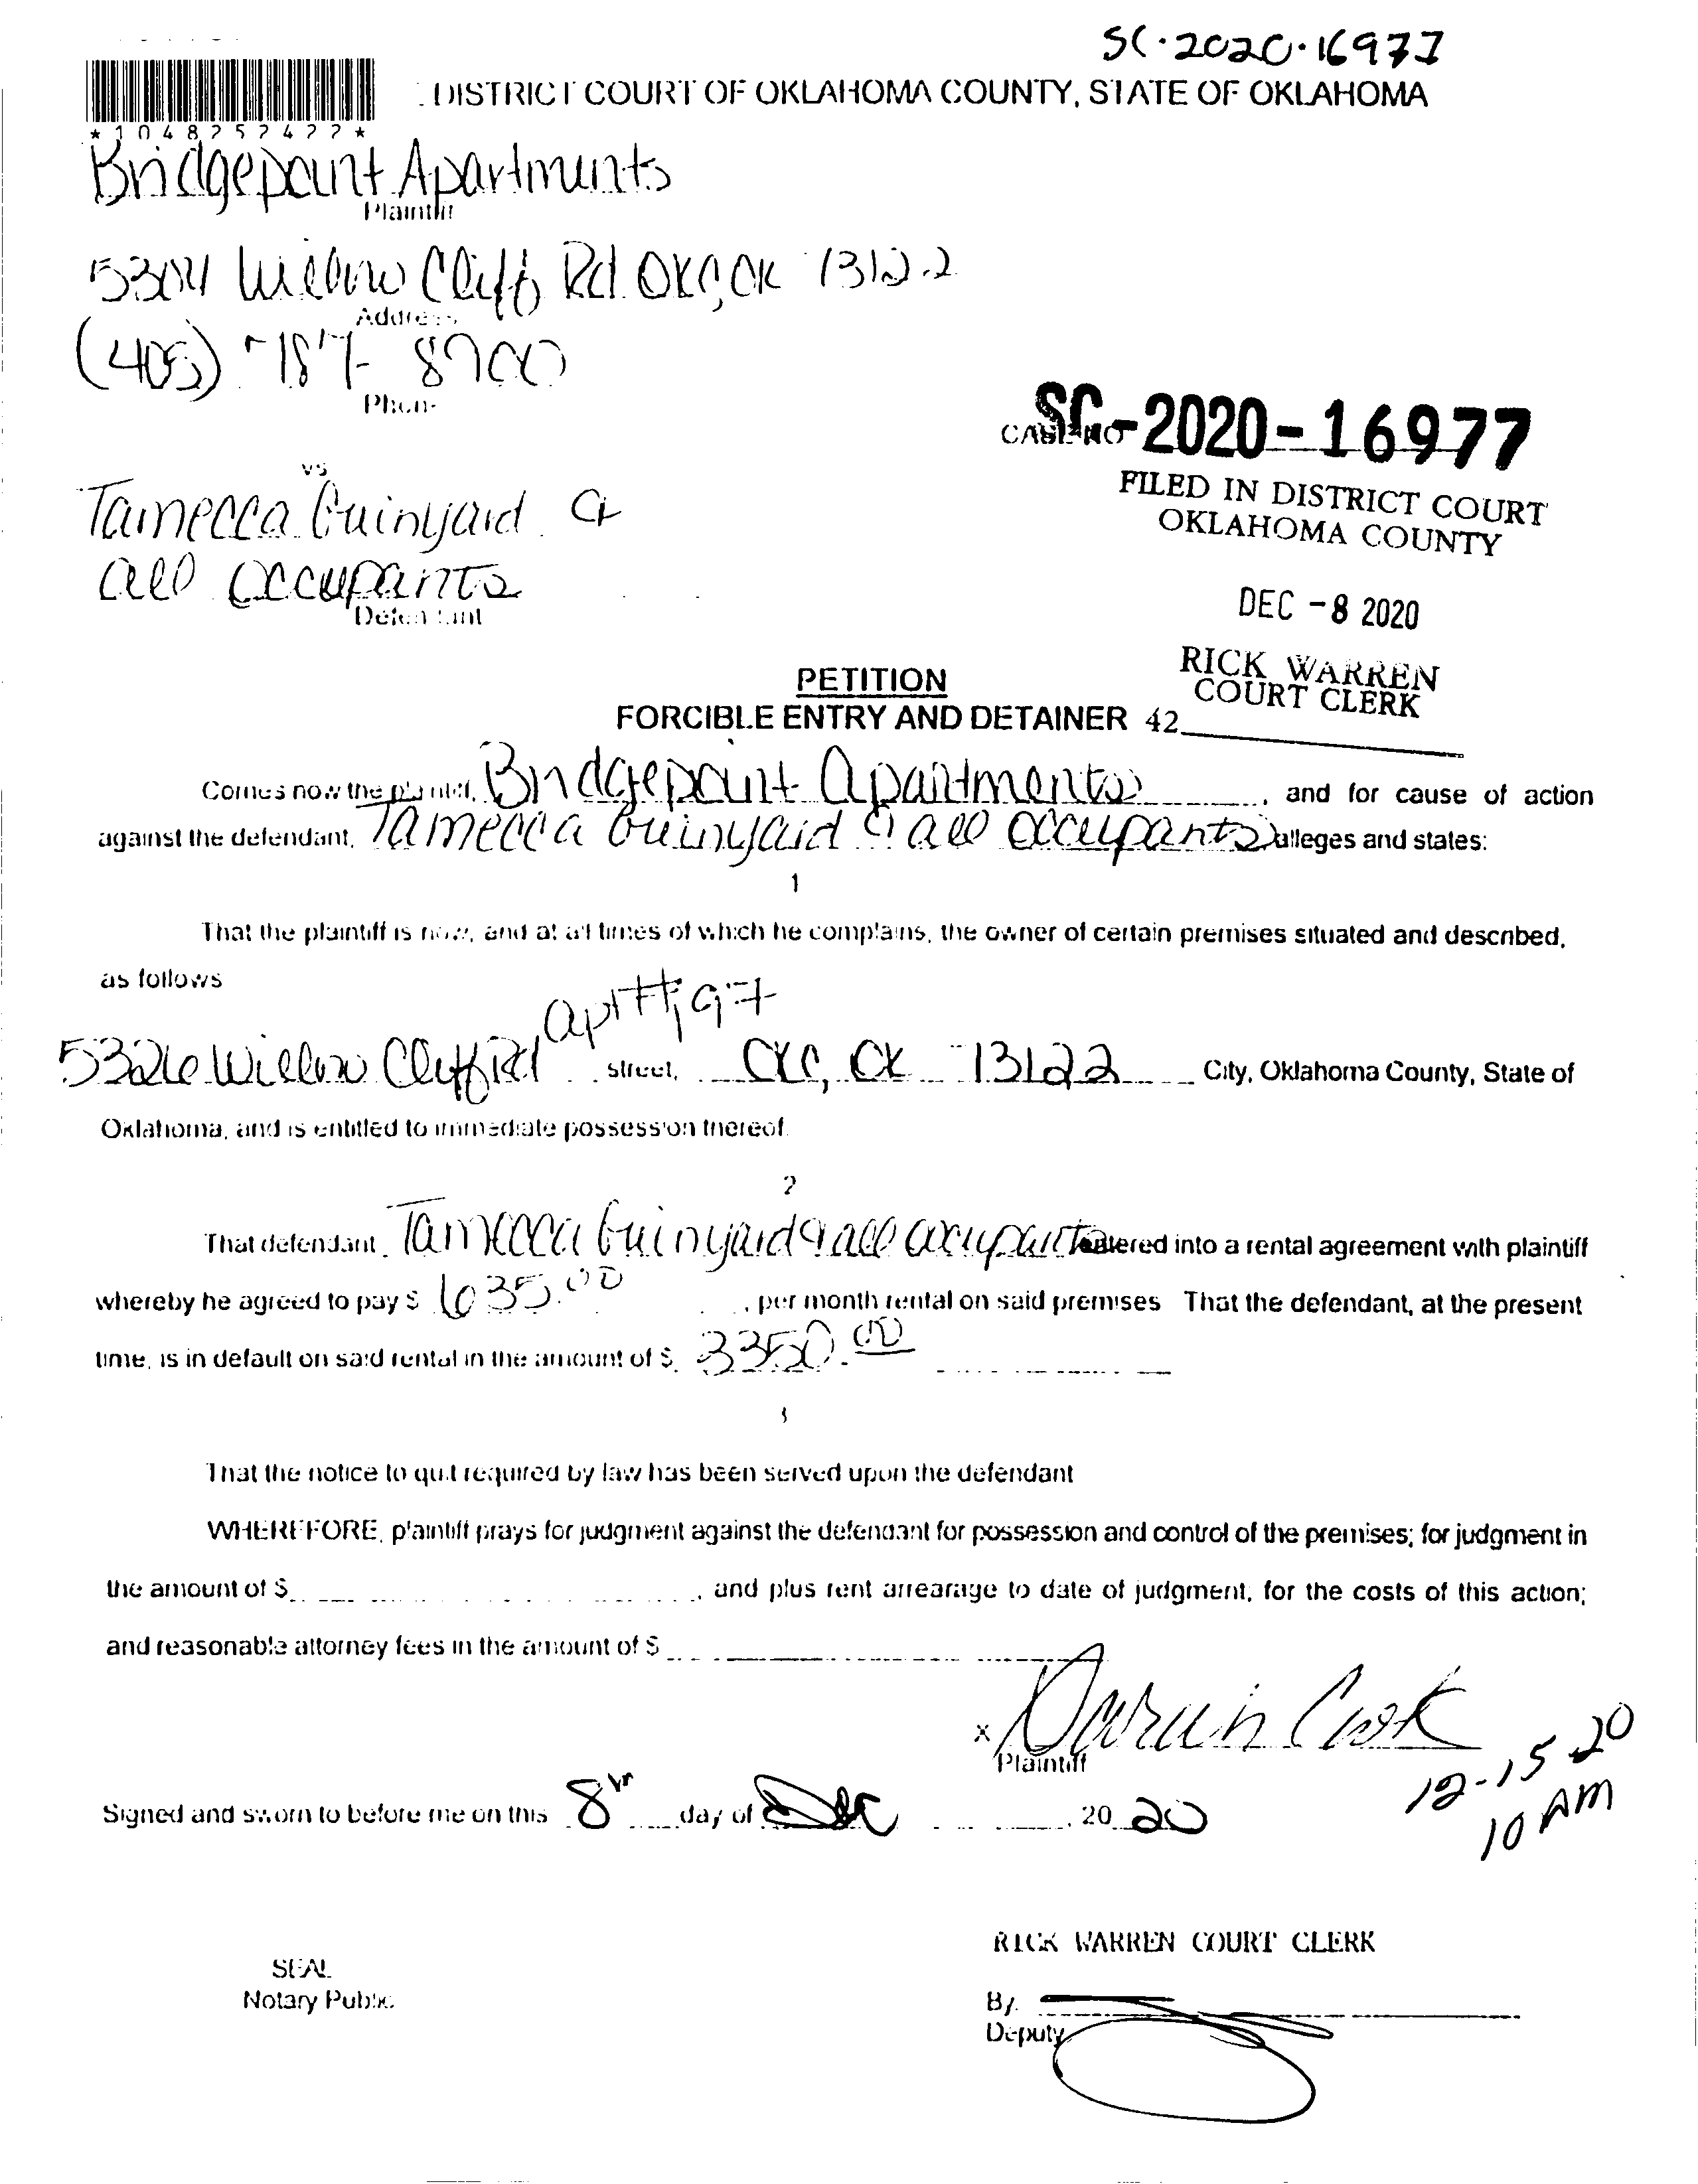 SC-2020-16977
DISTRICT COURT OF OKLAHOMA COUNTY, STATE OF OKLAHOMA
Bridgepoint Apartments
Plaintiff
5304 Willow Cliff Rd. OKC, OK 73122
Address
(405) 787-8900
Phone
SC-2020-16977
CASE NO
vs
FILED IN DISTRICT COURT
OKLAHOMA COUNTY
Tamecca Guinyard &
all occupants
Defendant
DEC -8 2020
RICK WARREN
COURT CLERK
PETITION
FORCIBLE ENTRY AND DETAINER 42
Comes now the plaintiff, Bridgepoint Apartments, and for cause of action
against the defendant, Tamecca Guinyard & all occupants alleges and states:
1
That the plaintiff is now, and at all times of which he complains, the owner of certain premises situated and described,
as follows
apt# 97
5326 Willow Cliff Rd street, OKC, OK 73122 City, Oklahoma County, State of
Oklahoma, and is entitled to immediate possession thereof.
2
That defendant Tamecca Guinyard & all occupants entered into a rental agreement with plaintiff
whereby he agreed to pay $ 635.00, per month rental on said premises That the defendant, at the present
time, is in default on said rental in the amount of $ 3350.00
3
That the notice to quit required by law has been served upon the defendant
WHEREFORE, plaintiff prays for judgment against the defendant for possession and control of the premises; for judgment in
the amount of $ , and plus rent arrearage to date of judgment, for the costs of this action;
and reasonable attorney fees in the amount of $
x
Plaintiff
12-15-20
10 AM
Signed and sworn to before me on this 8th day of Dec, 20 20
RICK WARREN COURT CLERK
SEAL
Notary Public
By
Deputy